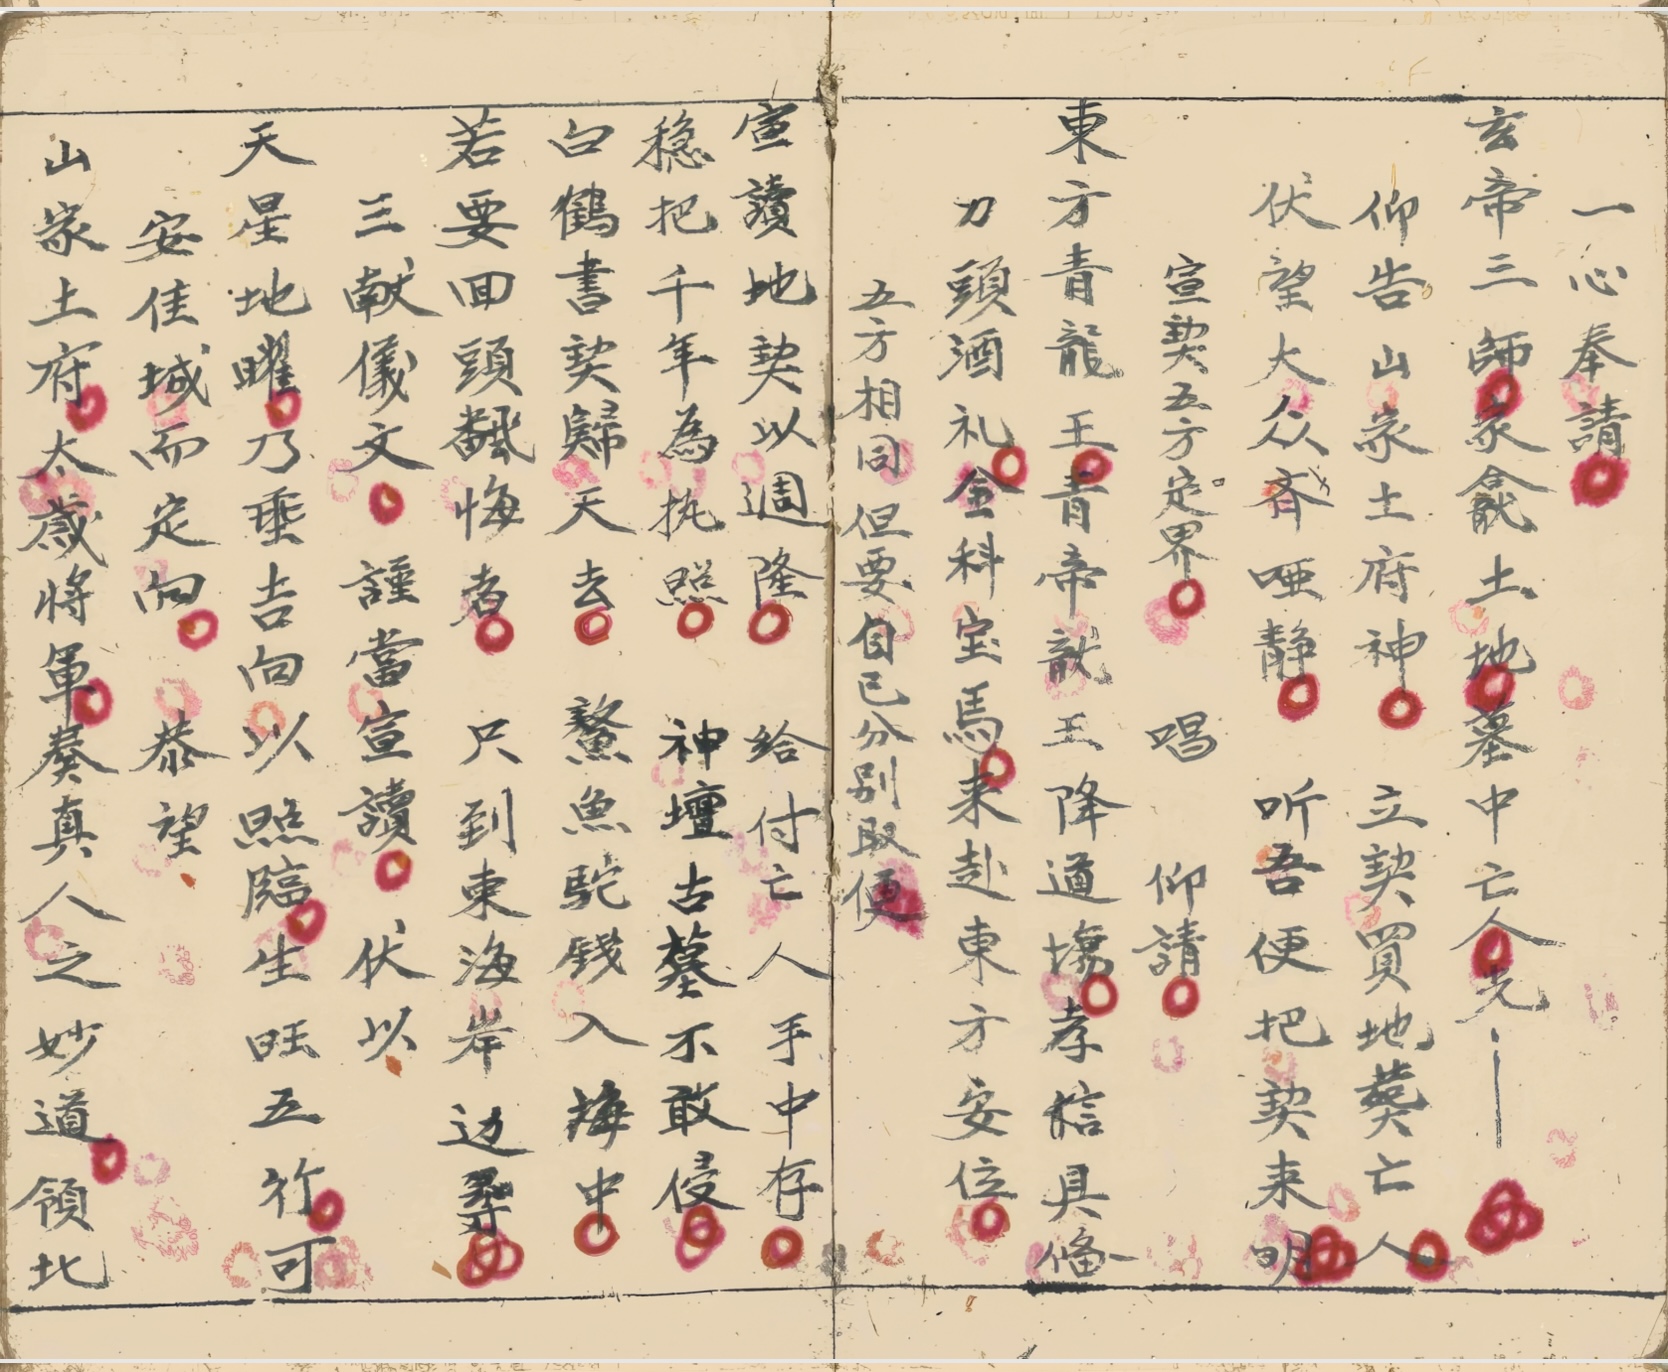 一心奉請
玄帝三師家龕土地墓中亡人先｜
仰告山家土府神　立契買地葬亡人
伏望大众斉哑静　听吾便把契来明
宣契五方定界　唱　仰請
東方青龍王青帝龍王降道塲孝信具俻
刀頭酒礼金科宝馬来赴東方安位
五方相同但要自己分别取便
宣讀地契以週隆　給付亡人手中存
穏把千年為执照　神壇古墓不敢侵
白鶴書契歸天去　鰲魚駝錢入海中
若要回頭飜悔者　只到東海岸边尋
三献儀文　謹當宣讀　伏以
天星地曜乃垂吉向以照臨生旺五行可
安佳城而定向　恭望
山家土府太歲将軍葬真人之妙道領北